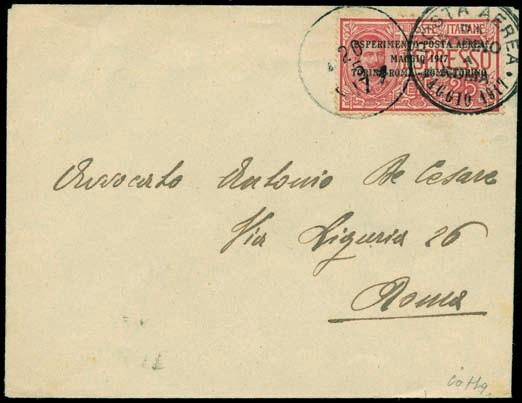 POSTE ITALIANE
ESPERIMENTO POSTA AEREA
MAGGIO 1917
TORINO-ROMA · ROMA-TORINO
ESPRESSO
25
POSTA AEREA
TORINO
ROMA
MAGGIO 1917
20
17
Avvocato Antonio De Cesare
Via Liguria 26
Roma